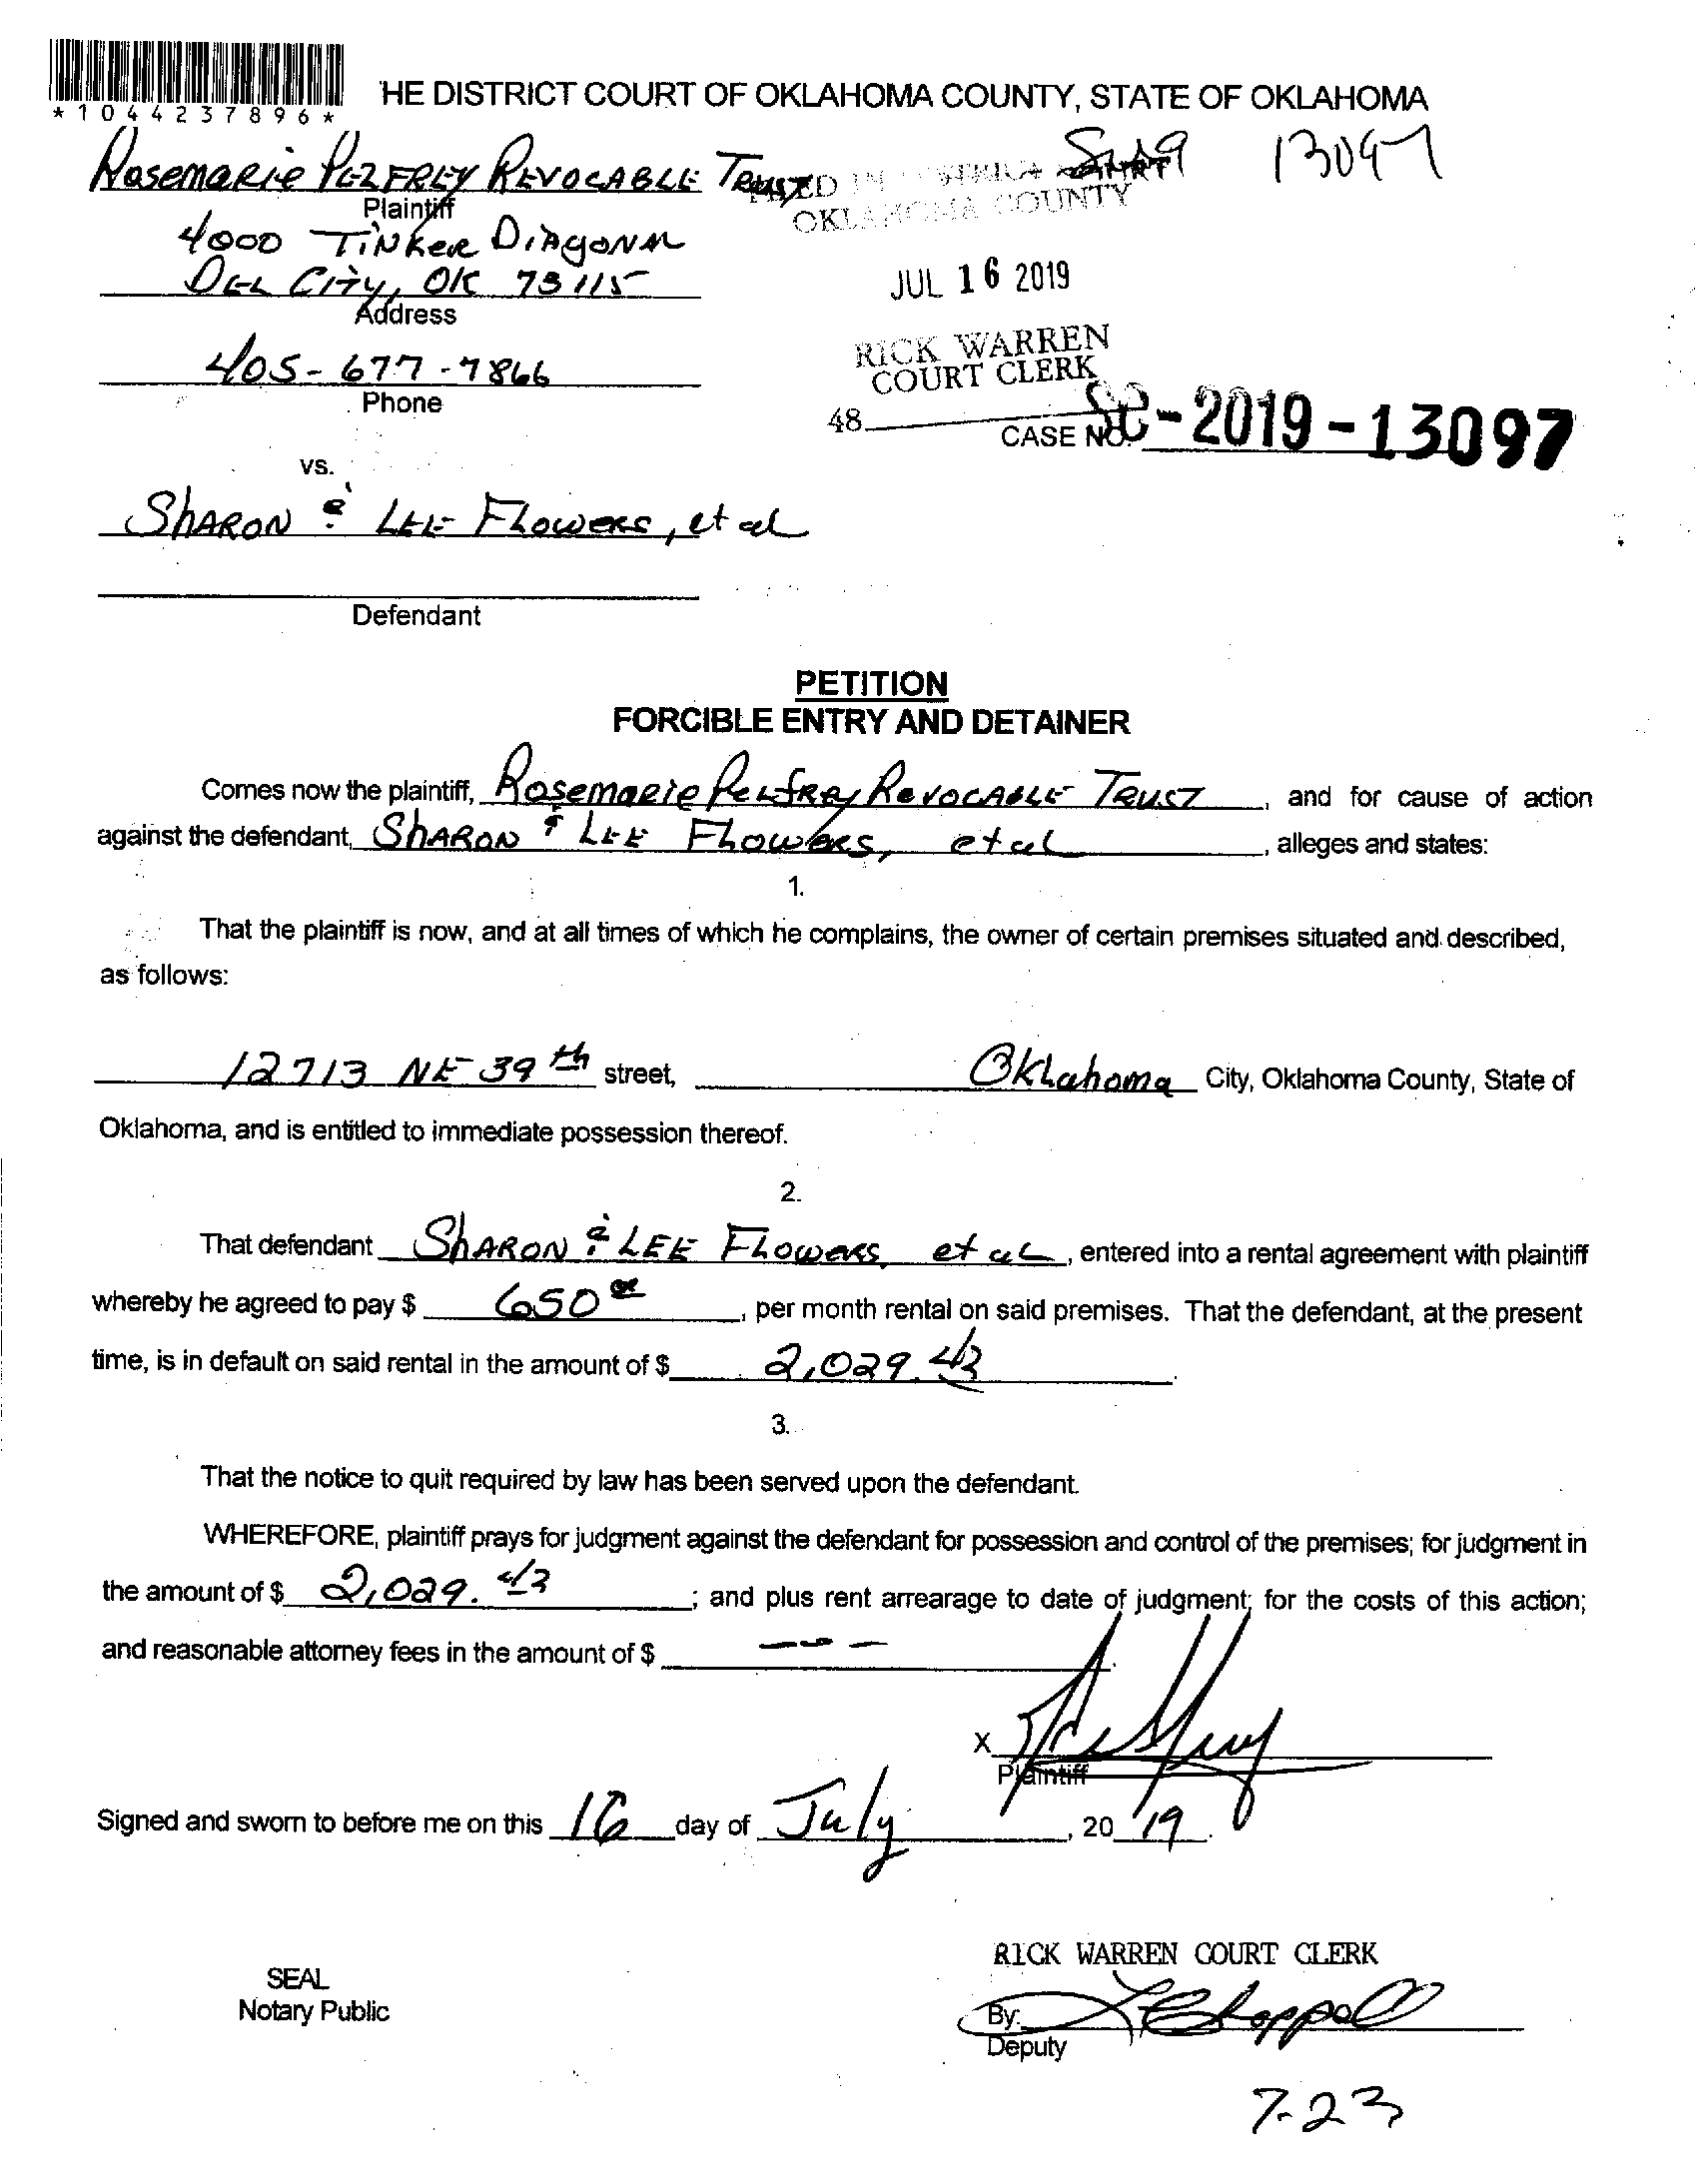 *1044237896*
HE DISTRICT COURT OF OKLAHOMA COUNTY, STATE OF OKLAHOMA
13097
Rosemarie Pelfrey Revocable Trust
FILED IN DISTRICT COURT
OKLAHOMA COUNTY
Plaintiff
4000 Tinker Diagonal
Del City, OK 73115
Address
JUL 16 2019
405-677-7866
Phone
RICK WARREN
COURT CLERK
48
CASE NO. SC-2019-13097
vs.
Sharon & Lee Flowers, et al
Defendant
PETITION
FORCIBLE ENTRY AND DETAINER
Comes now the plaintiff, Rosemarie Pelfrey Revocable Trust, and for cause of action
against the defendant, Sharon & Lee Flowers, et al, alleges and states:
1.
That the plaintiff is now, and at all times of which he complains, the owner of certain premises situated and described,
as follows:
12713 NE 39th street, Oklahoma City, Oklahoma County, State of
Oklahoma, and is entitled to immediate possession thereof.
2.
That defendant Sharon & Lee Flowers et al, entered into a rental agreement with plaintiff
whereby he agreed to pay $ 650, per month rental on said premises. That the defendant, at the present
time, is in default on said rental in the amount of $ 2,029.43.
3.
That the notice to quit required by law has been served upon the defendant.
WHEREFORE, plaintiff prays for judgment against the defendant for possession and control of the premises; for judgment in
the amount of $ 2,029.43; and plus rent arrearage to date of judgment; for the costs of this action;
and reasonable attorney fees in the amount of $ ---.
X
Plaintiff
Signed and sworn to before me on this 16 day of July, 2019.
RICK WARREN COURT CLERK
SEAL
Notary Public
By:
Deputy
7-23